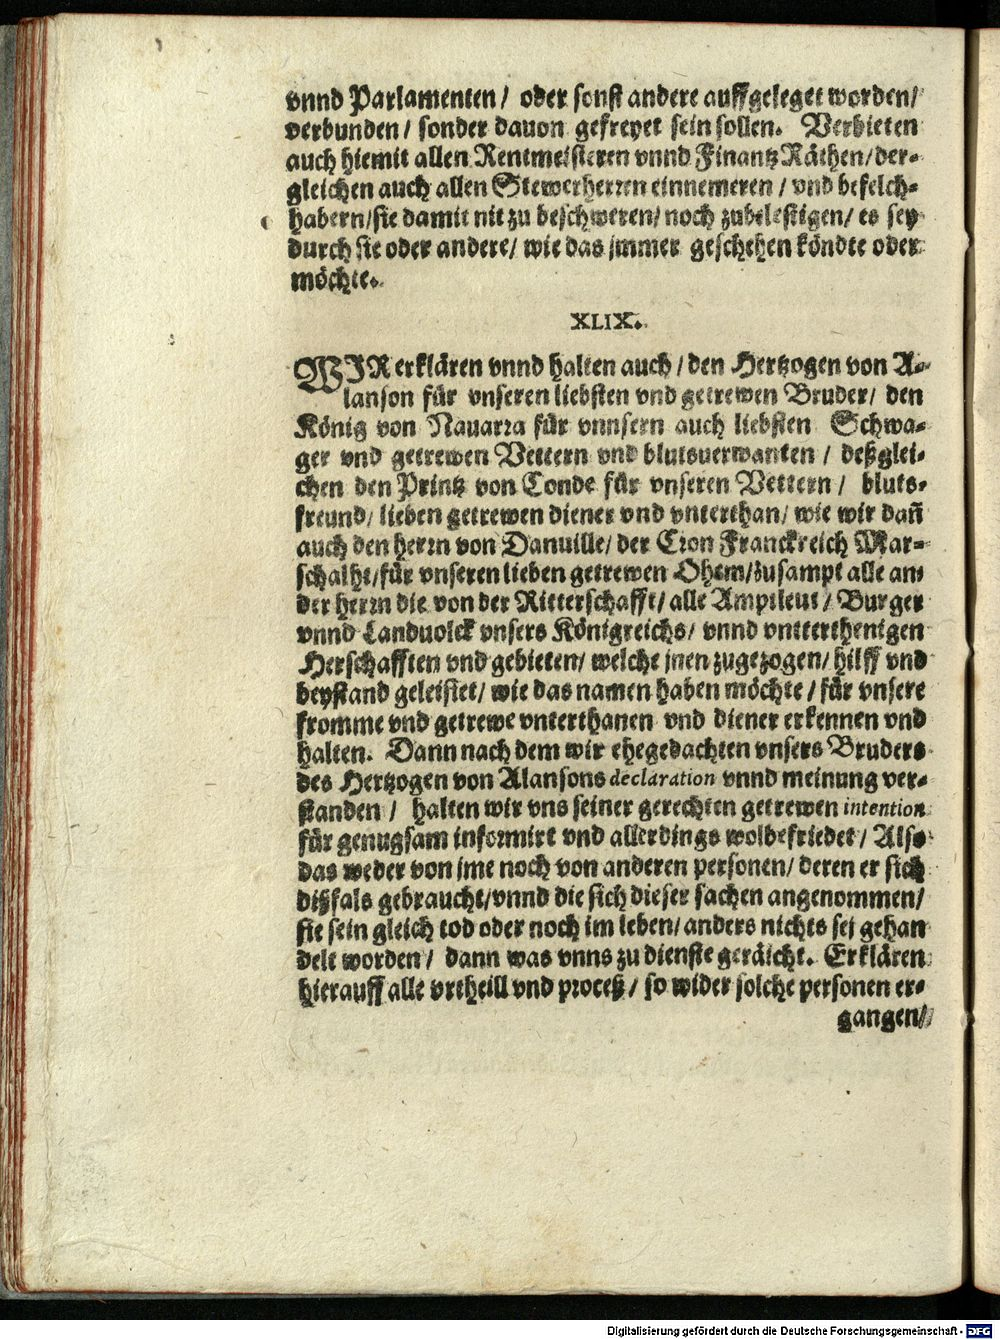 vnnd Parlamenten/ oder sonst andere auffgeleget worden/
verbunden/ sonder dauon gefreyet sein sollen. Verbieten
auch hiemit allen Rentmeisteren vnnd Finantz Räthen/der-
gleichen auch allen Stewerherren einnemeren / vnd befelch-
habern/sie damit nit zu beschweren/ noch zubelestigen/ es sey
durch sie oder andere/ wie das jmmer geschehen köndte oder
möchte.
XLIX.
WIR erklären vnnd halten auch / den Hertzogen von A-
lanson für vnseren liebsten vnd getrewen Bruder/ den
König von Nauarra für vnnsern auch liebsten Schwa-
ger vnd getrewen Vettern vnd blutsuerwanten / deßglei-
chen den Printz von Conde für vnseren Vettern / bluts-
freund/ lieben getrewen diener vnd vnterthan/ wie wir dañ
auch den herrn von Danuille/ der Cron Franckreich Mar-
schalht/für vnseren lieben getrewen Ohem/zusampt alle an-
der herrn die von der Ritterschafft/ alle Amptleut / Burger
vnnd Landuolck vnsers Königreichs/ vnnd vntterthenigen
Herschafften vnd gebieten/ welche jnen zugezogen/ hilff vnd
beystand geleistet/ wie das namen haben möchte / für vnsere
fromme vnd getrewe vnterthanen vnd diener erkennen vnd
halten. Dann nach dem wir ehegedachten vnsers Bruders
des Hertzogen von Alansons declaration vnnd meinung ver-
standen / halten wir vns seiner gerechten getrewen intention
für genugsam informirt vnd allerdings wolbefriedet/ Also
das weder von jme noch von anderen personen/ deren er sich
dißfals gebraucht/vnnd die sich dieser sachen angenommen/
sie sein gleich tod oder noch im leben/ anders nichts sei gehan
delt worden / dann was vnns zu dienste geräicht. Erklären
hierauff alle vrtheill vnd proceß / so wider solche personen er-
gangen/
Digitalisierung gefördert durch die Deutsche Forschungsgemeinschaft - DFG